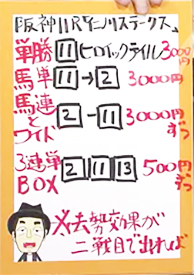 阪神11R 仁川ステークス
単勝 11 ヒロイックテイル 3000円
馬単 11→2 3000円
馬連とワイド 2-11 3000円ずつ
3連単BOX 2 11 13 500円ずつ
※去勢効果が
二戦目で出れば